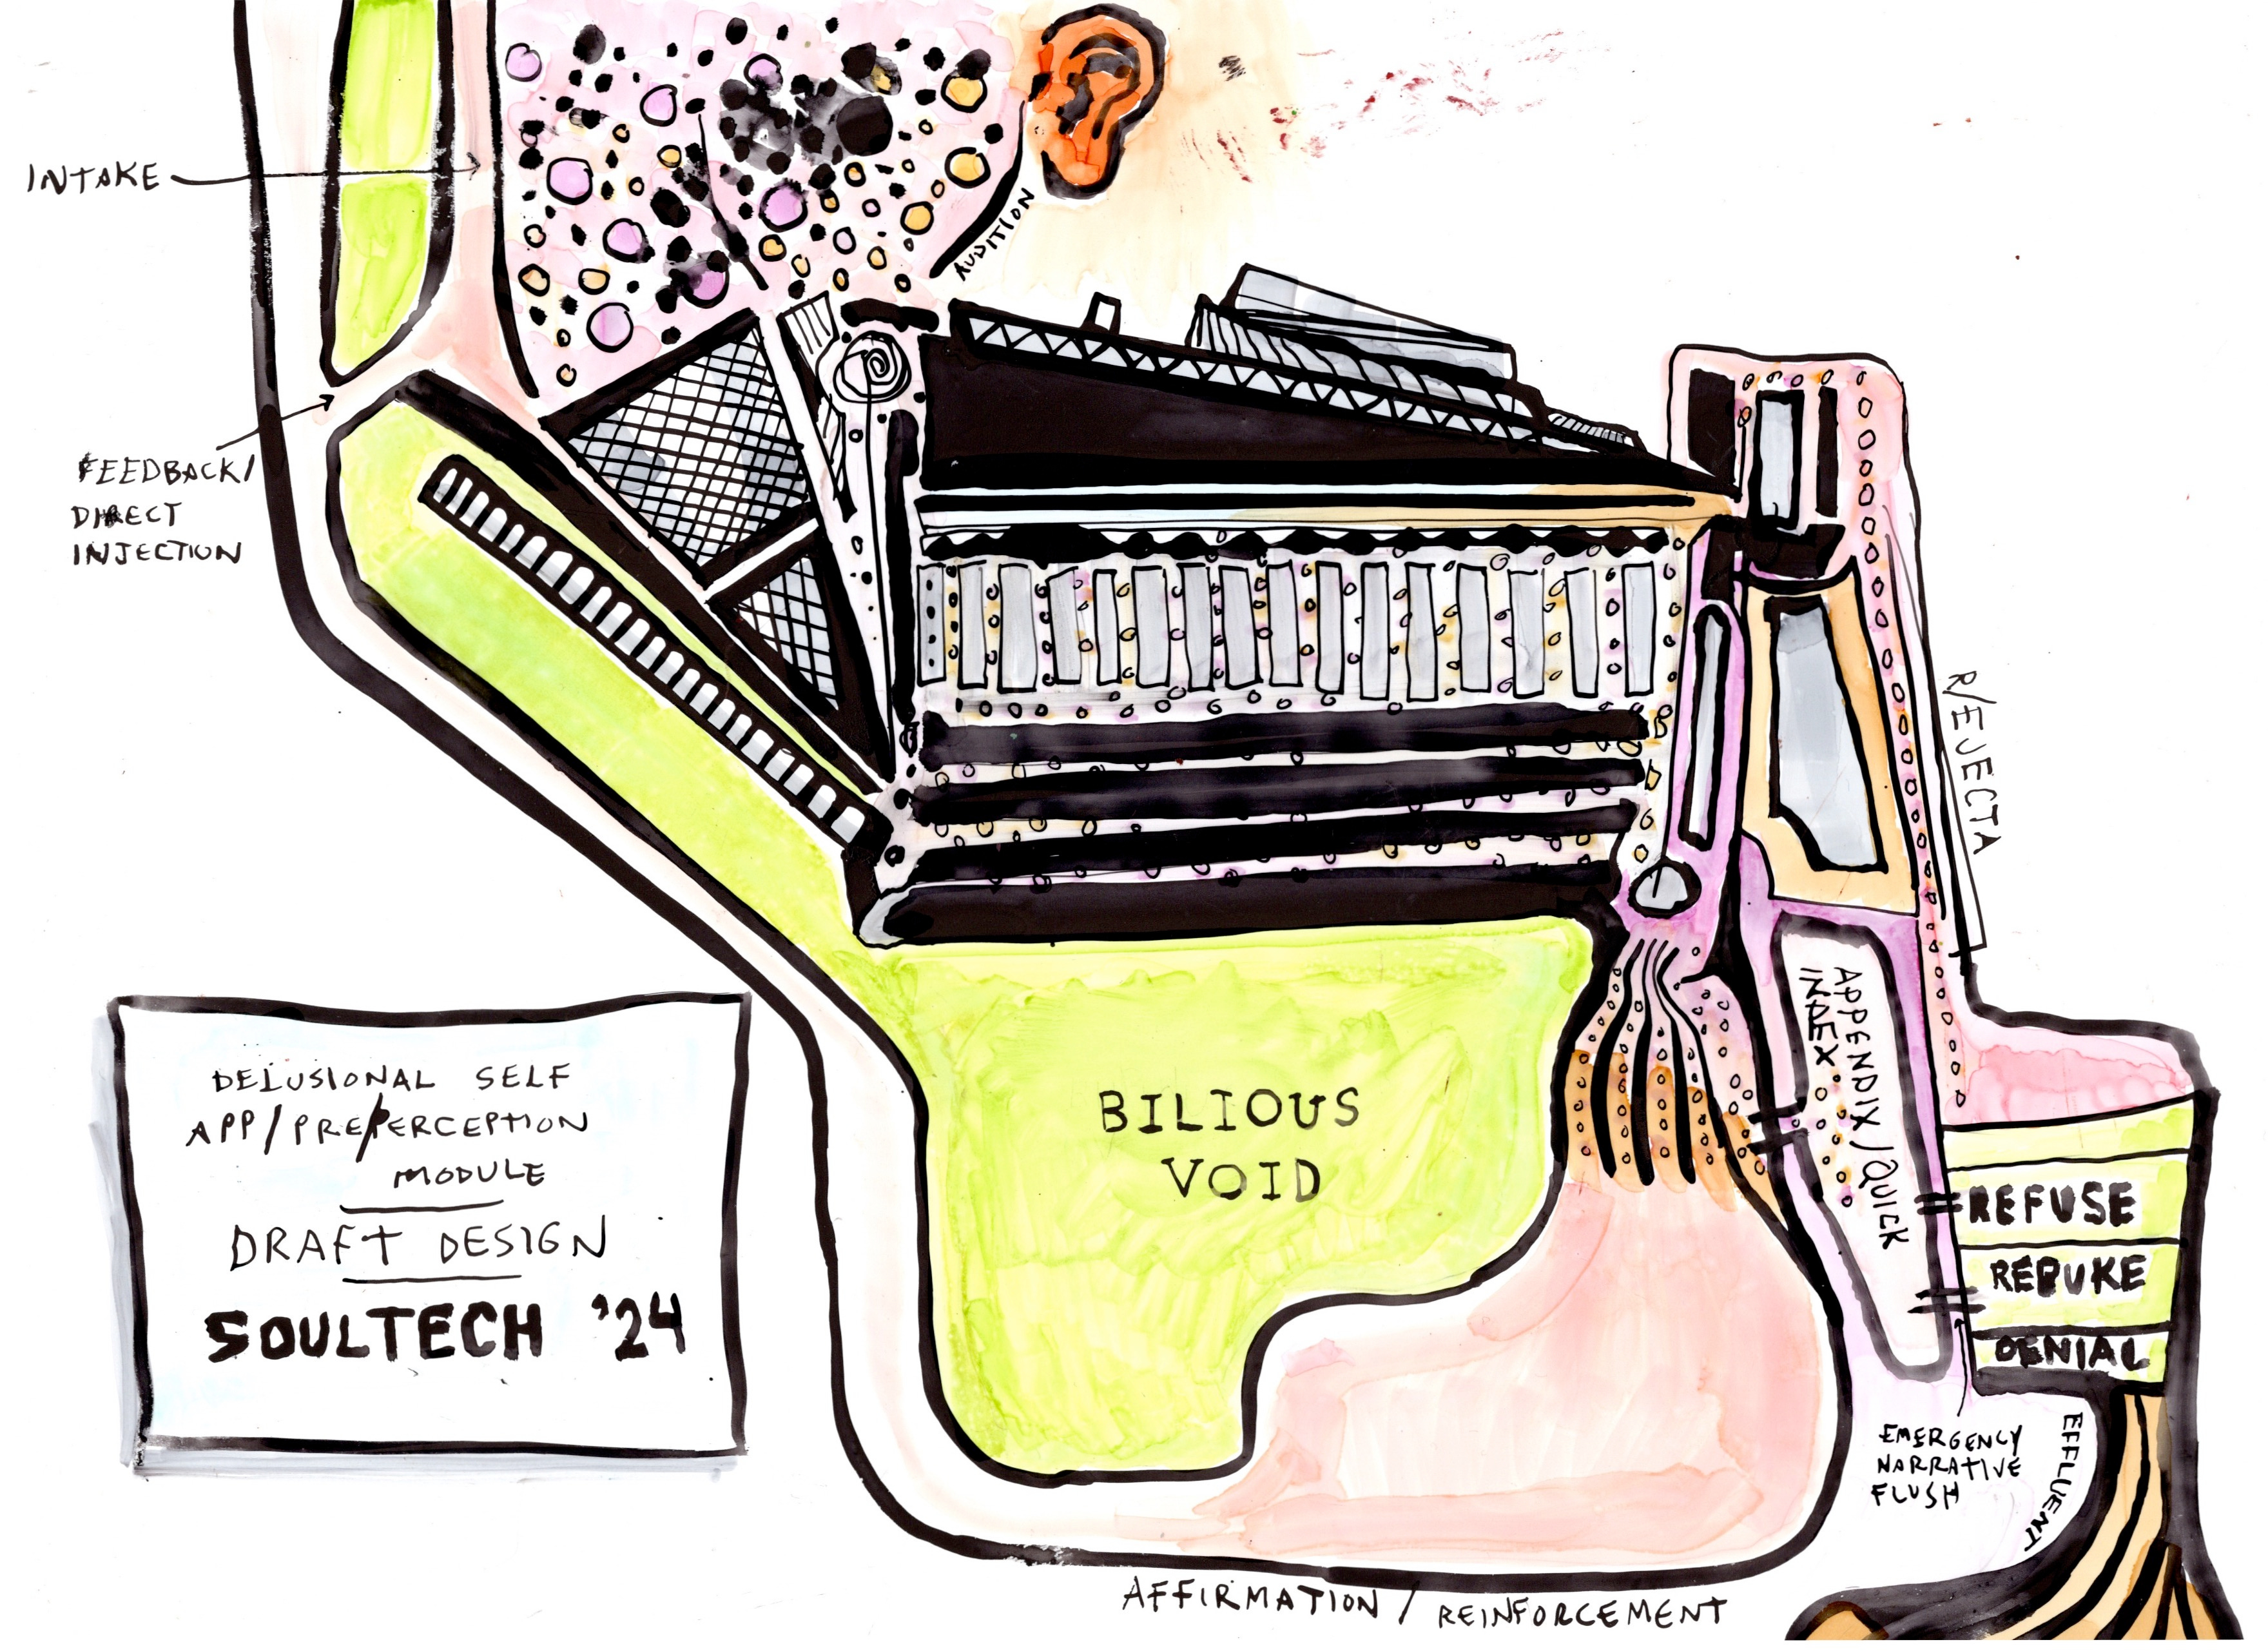 INTAKE
AUDITION
FEEDBACK/
DIRECT
INJECTION
R/EJECTA
APPENDIX/QUICK
INDEX
BILIOUS
VOID
REFUSE
REBUKE
DENIAL
EMERGENCY
NARRATIVE
FLUSH
EFFLUENT
AFFIRMATION / REINFORCEMENT
DELUSIONAL SELF
APP/PRE/PERCEPTION
MODULE
DRAFT DESIGN
SOULTECH '24